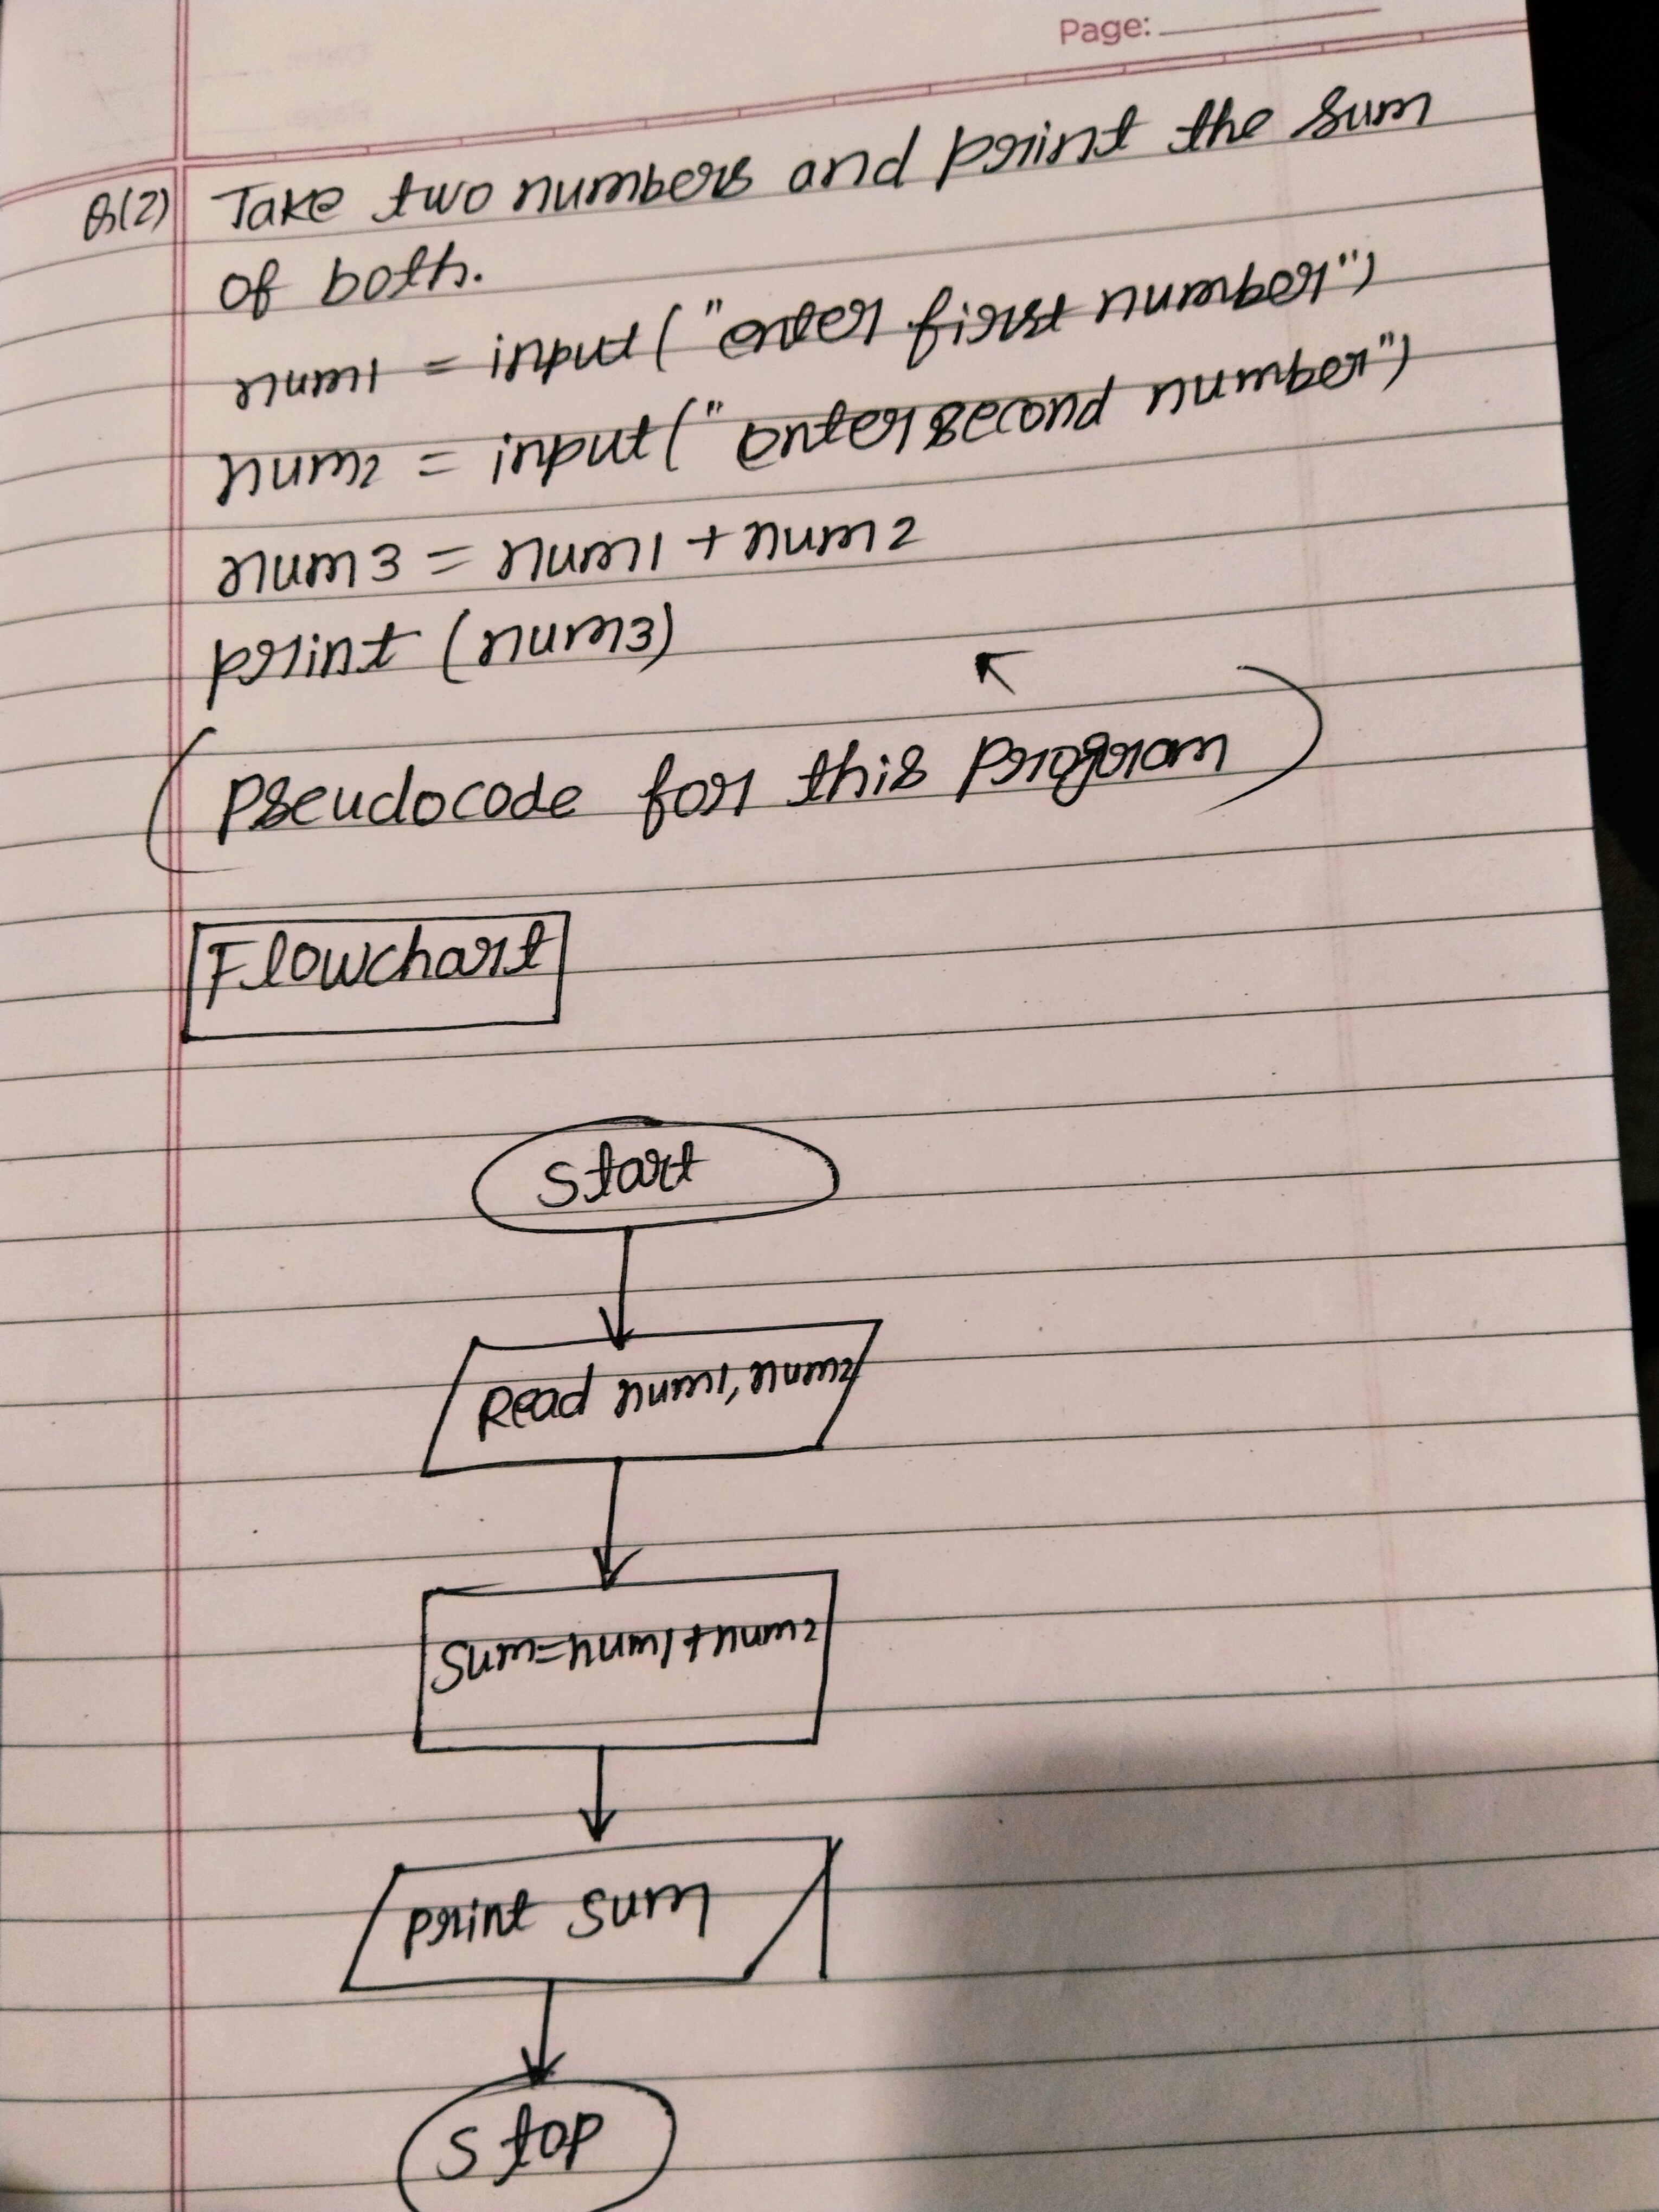 Page:
Q(2) Take two numbers and print the sum
of both.
num1 = input("enter first number")
num2 = input("enter second number")
num3 = num1 + num2
print (num3)
(Pseudocode for this program)
Flowchart
Start
Read num1, num2
Sum=num1+num2
print sum
Stop